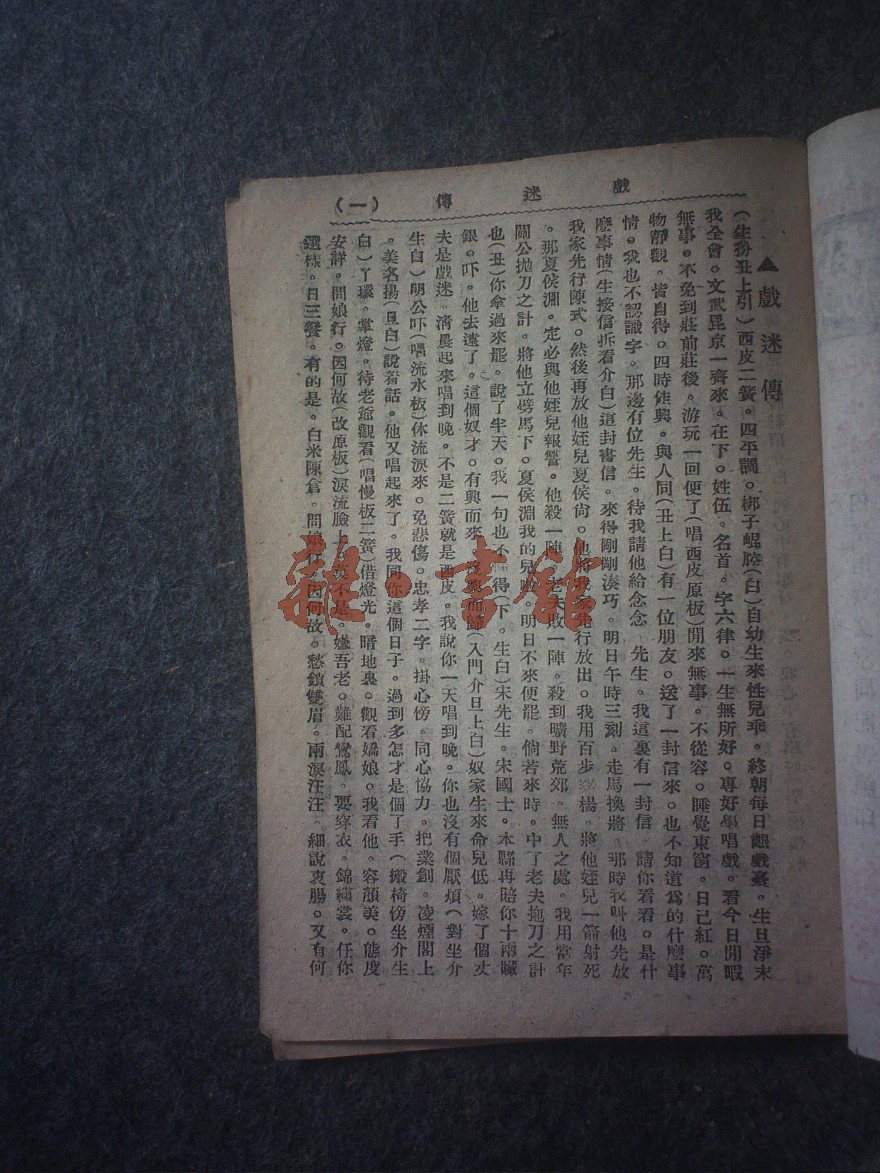 戲迷傳 (一)
▲戲迷傳
(生扮丑上引)西皮二簧。四平調。梆子崐腔(白)自幼生來性兒乖。終朝每日跟戲臺。生旦淨末
我全會。文武崑京一齊來。在下。姓伍。名首。字六律。一生無所好。專好學唱戲。看今日閒暇
無事。不免到莊前莊後。游玩一回便了(唱西皮原板)閒來無事。不從容。睡覺東窗。日已紅。萬
物靜觀。皆自得。四時佳興。與人同(丑上白)有一位朋友。送了一封信來。也不知道爲的什麼事
情。我也不認識字。那邊有位先生。待我請他給念念。先生。我這裏有一封信。請你看看。是什
麼事情(生接信拆看介白)這封書信。來得剛剛湊巧。明日午時三刻。走馬換將。那時我叫他先放
我家先行陳式。然後再放他姪兒夏侯尚。他將我家先行放出。我用百步穿楊。將他姪兒一箭射死
。那夏侯淵。定必與他姪兒報讐。他殺一陣。老夫敗一陣。殺到曠野荒郊。無人之處。我用當年
關公拋刀之計。將他立劈馬下。夏侯淵我的兒啊。明日不來便罷。倘若來時。中了老夫拖刀之計
也(丑)你拿過來罷。說了半天。我一句也不懂得(下。生白)宋先生。宋國士。本縣再賠你十兩贓
銀。吓。他去遠了。這個奴才。有興而來。敗興而歸(入門介旦上白)奴家生來命兒低。嫁了個丈
夫是戲迷。清晨起來唱到晚。不是二簧就是西皮。我說你一天唱到晚。你也沒有個厭煩(對坐介
生白)明公吓(唱流水板)休流淚來。免悲傷。忠孝二字。掛心傍。同心協力。把業創。凌煙閣上
。美名揚(旦白)說着話。他又唱起來了。我同你這個日子。過到多怎才是個了手(搬椅傍坐介生
白)丫環。掌燈。待老爺觀看(唱慢板二簧)借燈光。暗地裏。觀看嬌娘。我看他。容顏美。態度
安詳。問娘行。因何故(改原板)淚流臉上。莫不是。嫌吾老。難配鸞鳳。要穿衣。錦繡裳。任你
選樣。日三餐。有的是。白米陳倉。問娘行。因何故。愁鎖雙眉。兩淚汪汪。細說衷腸。又有何
雜·書館